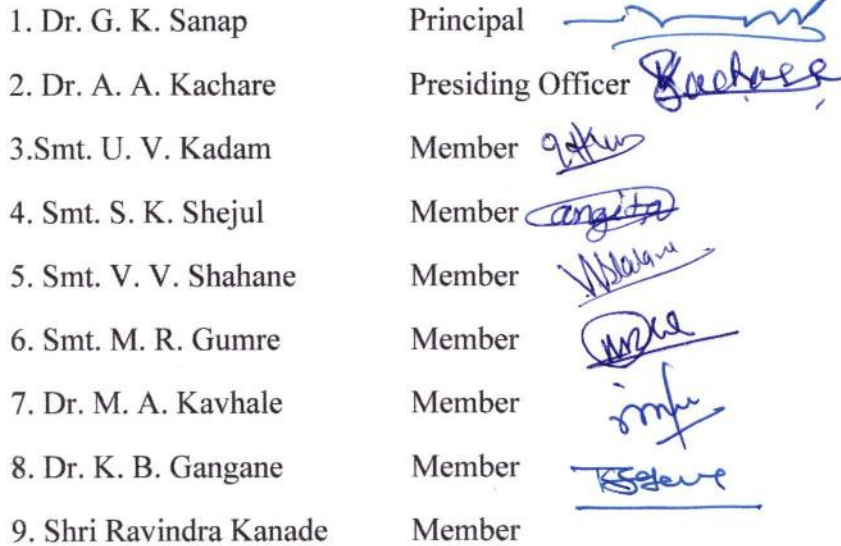 1. Dr. G. K. Sanap Principal
2. Dr. A. A. Kachare Presiding Officer Kachare
3.Smt. U. V. Kadam Member
4. Smt. S. K. Shejul Member angita
5. Smt. V. V. Shahane Member
6. Smt. M. R. Gumre Member
7. Dr. M. A. Kavhale Member
8. Dr. K. B. Gangane Member
9. Shri Ravindra Kanade Member